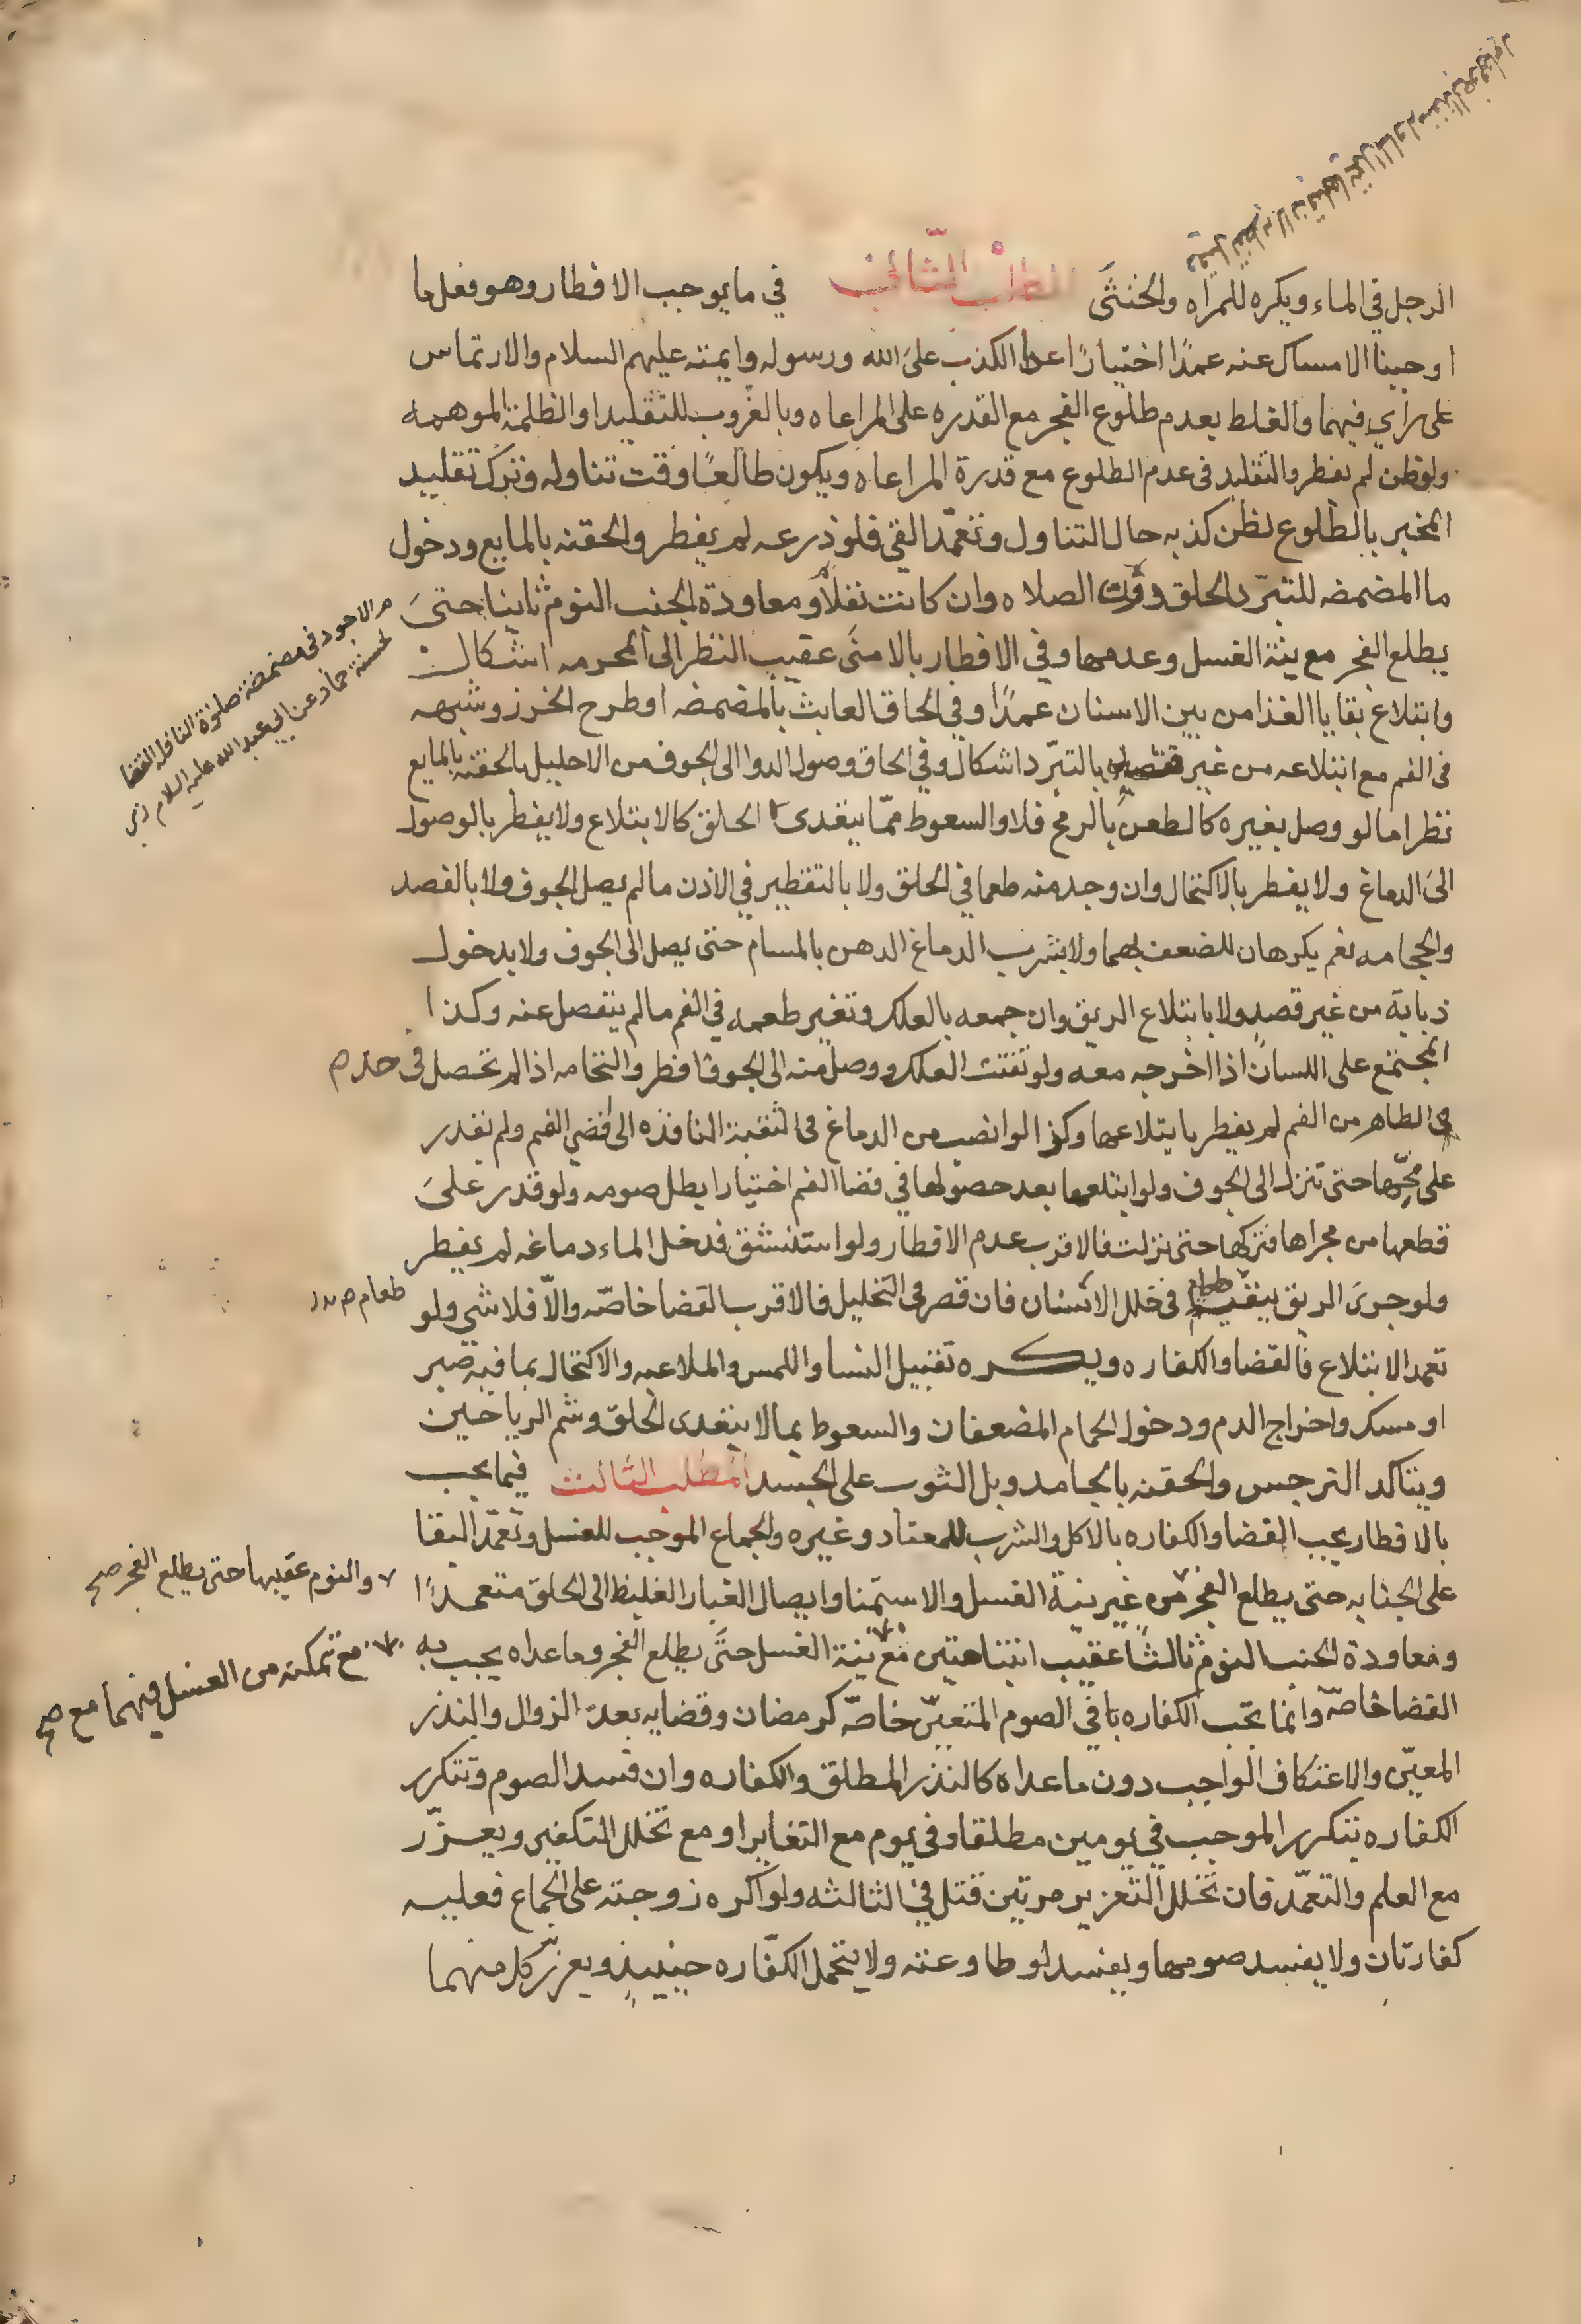 الرجل في الماء ويكره للمراه والخنثى المطلب الثاني في ما يوجب الافطار وهو فعل ما
اوجبنا الامساك عنه عمدًا اختيارًا عدا الكذب على الله ورسوله وايمته عليهم السلام والارتماس
على راي فيهما والغلط بعدم طلوع الفجر مع القدره على المراعاه وبالغروب للتقليد او الظلمة الموهمه
ولو ظن لم يفطر والتقليد في عدم الطلوع مع قدرة المراعاه ويكون طالعًا وقت تناوله وترك تقليد
المخبر بالطلوع لظن كذبه حال التناول وتعمّد القي فلو ذرعه لم يفطر والحقنه بالمايع ودخول
ما المضمضه للتبرّد الحلق دون الصلاه وان كانت نفلًا ومعاودة الجنب النوم ثانيا حتى
يطلع الفجر مع نية الغسل وعدمها وفي الافطار بالامنى عقيب النظر الى المحرمه اشكال
وابتلاع بقايا الغذا من بين الاسنان عمدًا وفي الحاق العابث بالمضمضه او طرح الخرز وشبهه
في الفم مع ابتلاعه من غير قصد بالتبرّد اشكال وفي الحاق وصول الدوا الى الجوف من الاحليل بالحقنه بالمايع
نظر اما لو وصل بغيره كالطعن بالرمح فلا والسعوط ممّا يتعدى الحلق كالابتلاع ولا يفطر بالوصول
الى الدماغ ولا يفطر بالاكتحال وان وجد منه طعما في الحلق ولا بالتقطير في الاذن ما لم يصل الجوف ولا بالفصد
والحجامه نعم يكرهان للضعف بهما ولا بشرب الدماغ الدهن بالمسام حتى يصل الى الجوف ولا بدخول
ذبابة من غير قصد ولا بابتلاع الريق وان جمعه بالعلك وتغير طعمه في الفم ما لم ينفصل عنه وكذا
المجتمع على اللسان اذا اخرجه معه ولو تفتت العلك ووصل منه الى الجوف افطر والنخامه اذا لم تحصل في حد
الظاهر من الفم لم يفطر بابتلاعها وكذا لو انصب من الدماغ في الثقبة النافذه الى اقصى الفم ولم يقدر
على مجّها حتى تنزل الى الجوف ولو ابتلعها بعد حصولها في فضا الفم اختيارا بطل صومه ولو قدر على
قطعها من مجراها فتركها حتى نزلت فالاقرب عدم الافطار ولو استنشق فدخل الماء دماغه لم يفطر
ولو جرى الريق ببقية في خلل الاسنان فان قصر في التخليل فالاقرب القضا خاصّه والّا فلا شي ولو
تعمد الابتلاع فالقضا والكفاره ويكره تقبيل النسا واللمس والملاعبه والاكتحال بما فيه صبر
او مسك واخراج الدم ودخول الحمام المضعفان والسعوط بما لا يتعدى الحلق وشم الرياحين
ويتاكد النرجس والحقنه بالجامد وبل الثوب على الجسد المطلب الثالث فيما يجب
بالافطار يجب القضا والكفاره بالاكل والشرب للمعتاد وغيره والجماع الموجب للغسل وتعمّد البقا
على الجنابه حتى يطلع الفجر من غير نية الغسل والاستمنا وايصال الغبار الغليظ الى الحلق متعمدًا
ومعاودة الجنب النوم ثالثًا عقيب انتباهتين مع نية الغسل حتى يطلع الفجر وما عداه يجب به
القضا خاصّه وانما تجب الكفاره في الصوم المتعيّن خاصّه كرمضان وقضايه بعد الزوال والنذر
المعيّن والاعتكاف الواجب دون ما عداه كالنذر المطلق والكفاره وان فسد الصوم وتتكرر
الكفاره بتكرر الموجب في يومين مطلقا وفي يوم مع التغاير او مع تخلل التكفير ويعزّر
مع العلم والتعمّد فان تخلل التعزير مرتين قتل في الثالثه ولو اكره زوجته على الجماع فعليه
كفارتان ولا يفسد صومها ويفسد لو طاوعته ولا يتحمل الكفّاره حينيذ ويعزر كل منهما
الاجود في مضمضة صلوة النافله القضا
لحسنة حماد عن ابي عبد الله عليه السلام
طعام
والنوم عقيبها حتى يطلع الفجر صح
مع تمكنه من الغسل فيهما مع صح